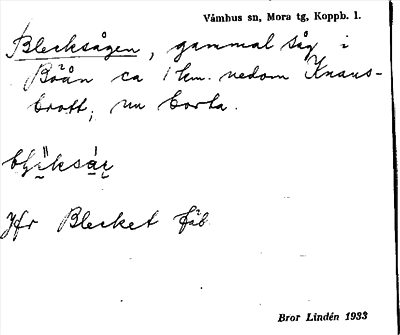 Våmhus sn, Mora tg, Koppb. l.
Blecksågen, gammal såg i
Böån ca 1 km. nedom Knaus-
brott, nu borta.
Jfr Blecket fäb
Bror Lindén 1933